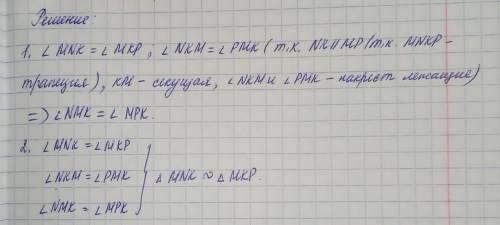 Решение:
1. ∠MNK = ∠MKP, ∠NKM = ∠PMK (т.к. NK || MP (т.к. MNKP -
трапеция), KM - секущая, ∠NKM и ∠PMK - накрест лежащие)
=> ∠NMK = ∠MPK.
2. ∠MNK = ∠MKP
∠NKM = ∠PMK } △MNK ∾ △MKP.
∠NMK = ∠MPK